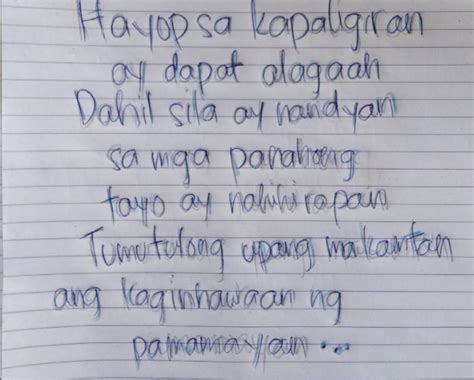 Hayop sa kapaligiran
ay dapat alagaan
Dahil sila ay nandyan
sa mga panahong
tayo ay nahihirapan
Tumutulong upang makamtan
ang kaginhawaan ng
pamamayan...